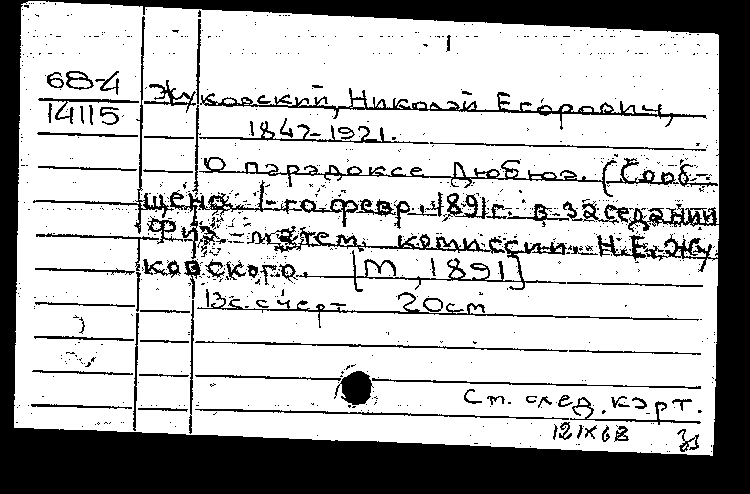 1
68-4
14115
Жуковский, Николай Егорович,
1847-1921.
О парадоксе Дюбюа. (Сооб-
щено 1-го февр. 1891г. в заседании
Физ-матем. комиссии. Н.Е. Жу
ковского. [М, 1891]
13с. с черт. 20см
См. след. карт.
12 IX 68